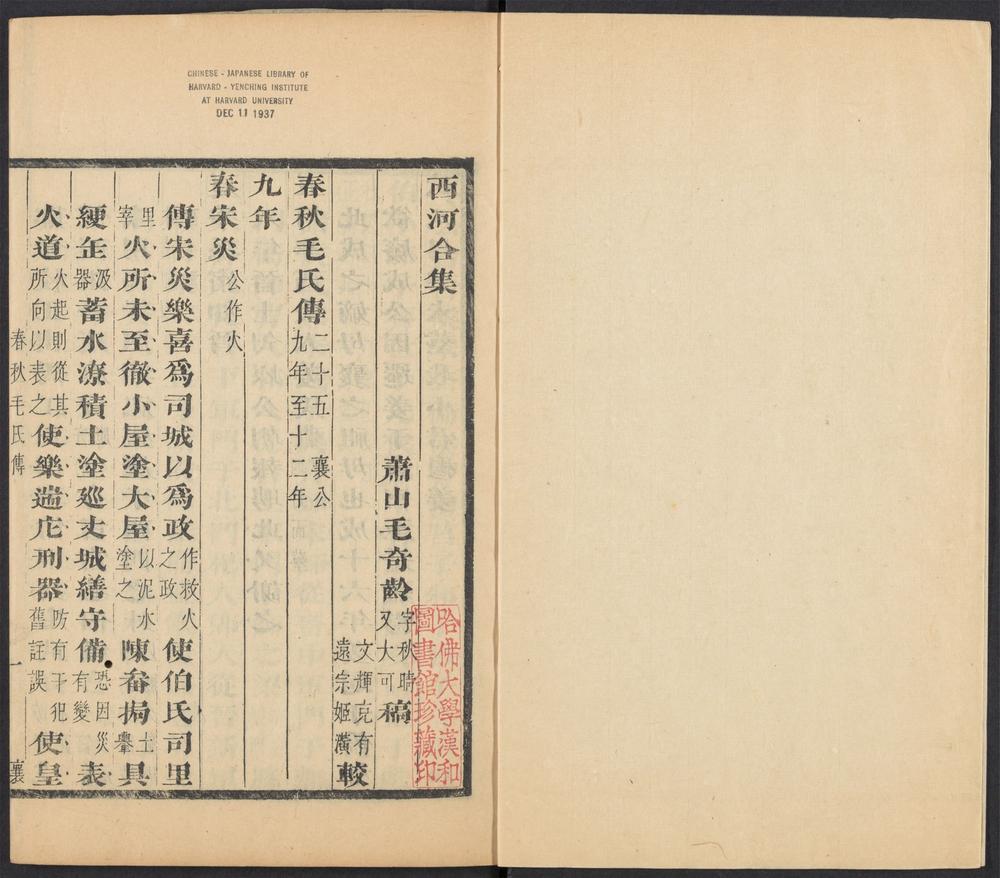 CHINESE - JAPANESE LIBRARY OF
HARVARD - YENCHING INSTITUTE
AT HARVARD UNIVERSITY
DEC 11 1937
西河合集
蕭山毛奇齡字秋晴又大可稿
哈佛大學漢和
圖書館珍藏印
文輝克有
遠宗姬潢較
春秋毛氏傳二十五 襄公九年至十二年
九年
春宋災公作火
傳宋災樂喜爲司城以爲政作救火之政使伯氏司里
里宰火所未至徹小屋塗大屋以泥水塗之陳畚挶土轝具
綆缶汲器蓄水潦積土塗廵丈城繕守備恐因災有變表
火道火起則從其所向以表之使樂遄庀刑器防有干犯舊註誤使皇
春秋毛氏傳 一 襄